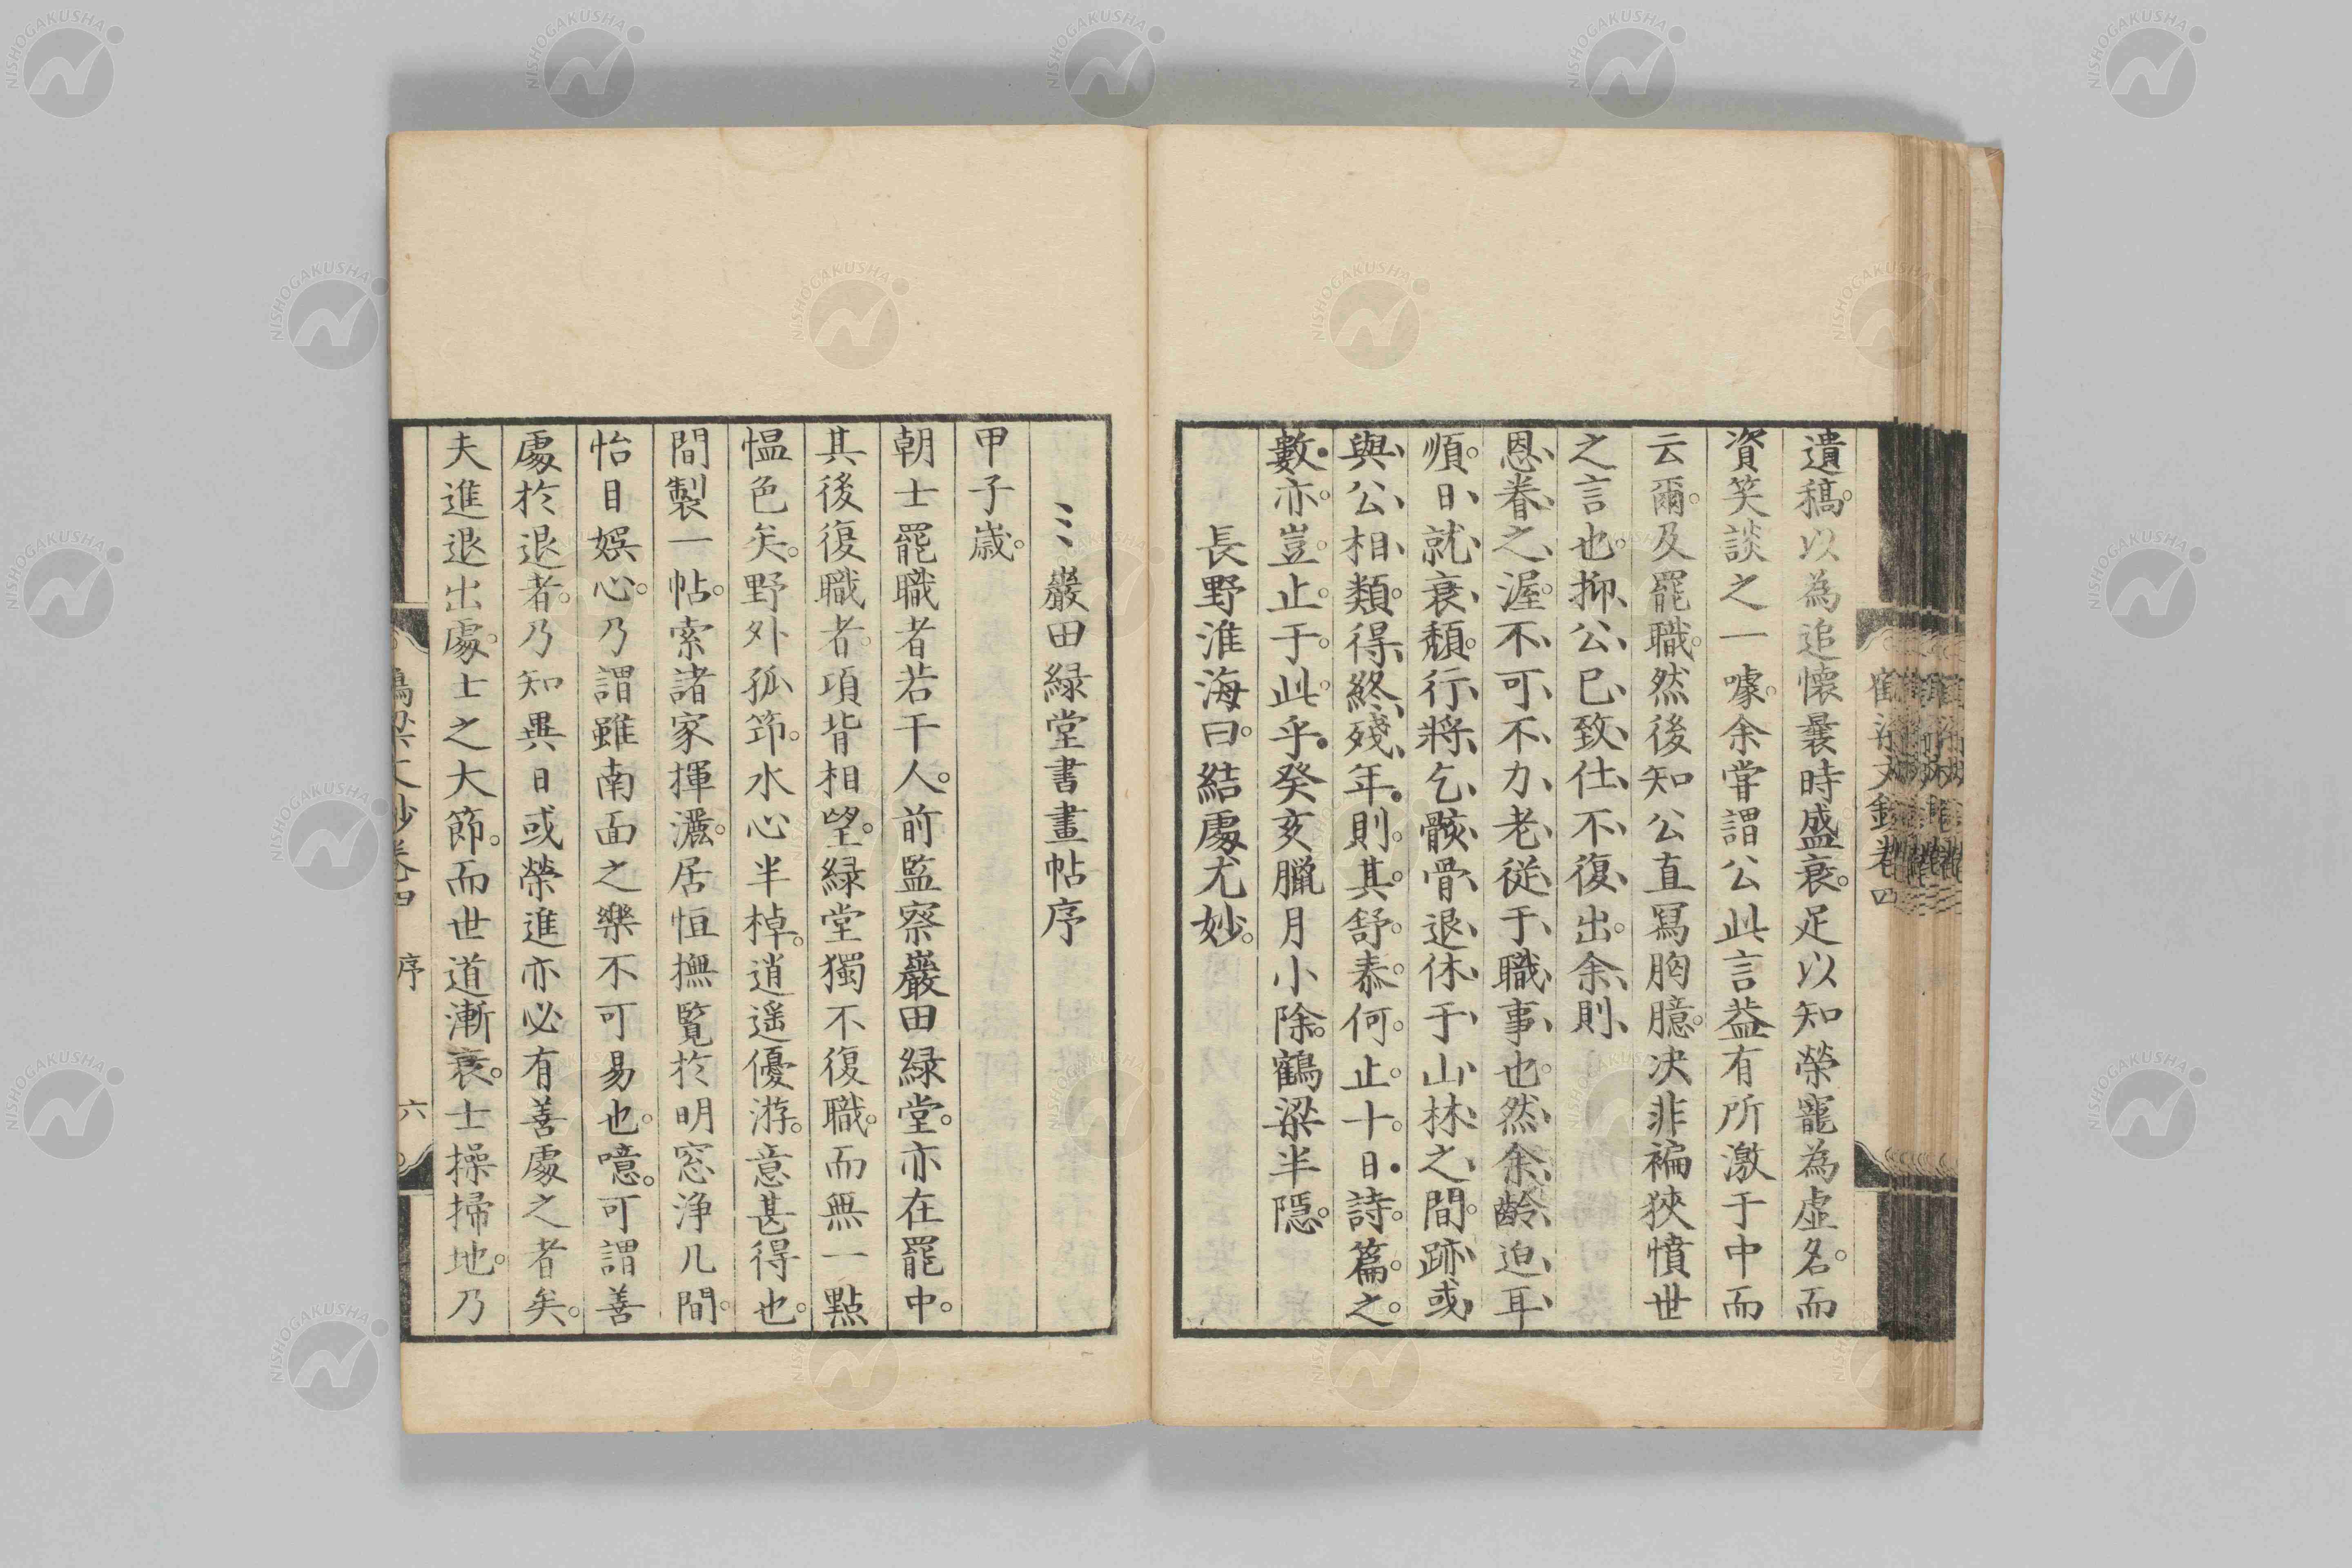 遺稿。以為追懷曩時盛衰。足以知榮寵為虛名。而
資笑談之一噱。余甞謂公此言益有所激于中而
云爾。及罷職。然後知公直冩胸臆。决非褊狹憤世
之言也。抑公已致仕不復出。余則
恩眷之渥。不可不力老從于職事也。然余齡迫耳
順。日就衰頹。行將乞骸骨退休于山林之間。跡或
與公相類。得終殘年。則其舒泰何止十日。詩篇之
數。亦豈止于此乎。癸亥臘月小除。鶴梁半隱。
長野淮海曰。結處尤妙。
鶴梁文鈔卷四
巖田緑堂書畫帖序
甲子歳。
朝士罷職者若干人。前監察巖田緑堂。亦在罷中。
其後復職者。項背相望。緑堂獨不復職。而無一點
愠色矣。野外孤筇。水心半棹。逍遥優游。意甚得也。
間製一帖。索諸家揮灑。居恒撫覧於明窓浄几間。
怡目娯心。乃謂雖南面之樂不可易也。噫。可謂善
處於退者。乃知異日或榮進亦必有善處之者矣。
夫進退出處。士之大節。而世道漸衰。士操掃地。乃
鶴梁文鈔卷四 序 六
NISHOGAKUSHA